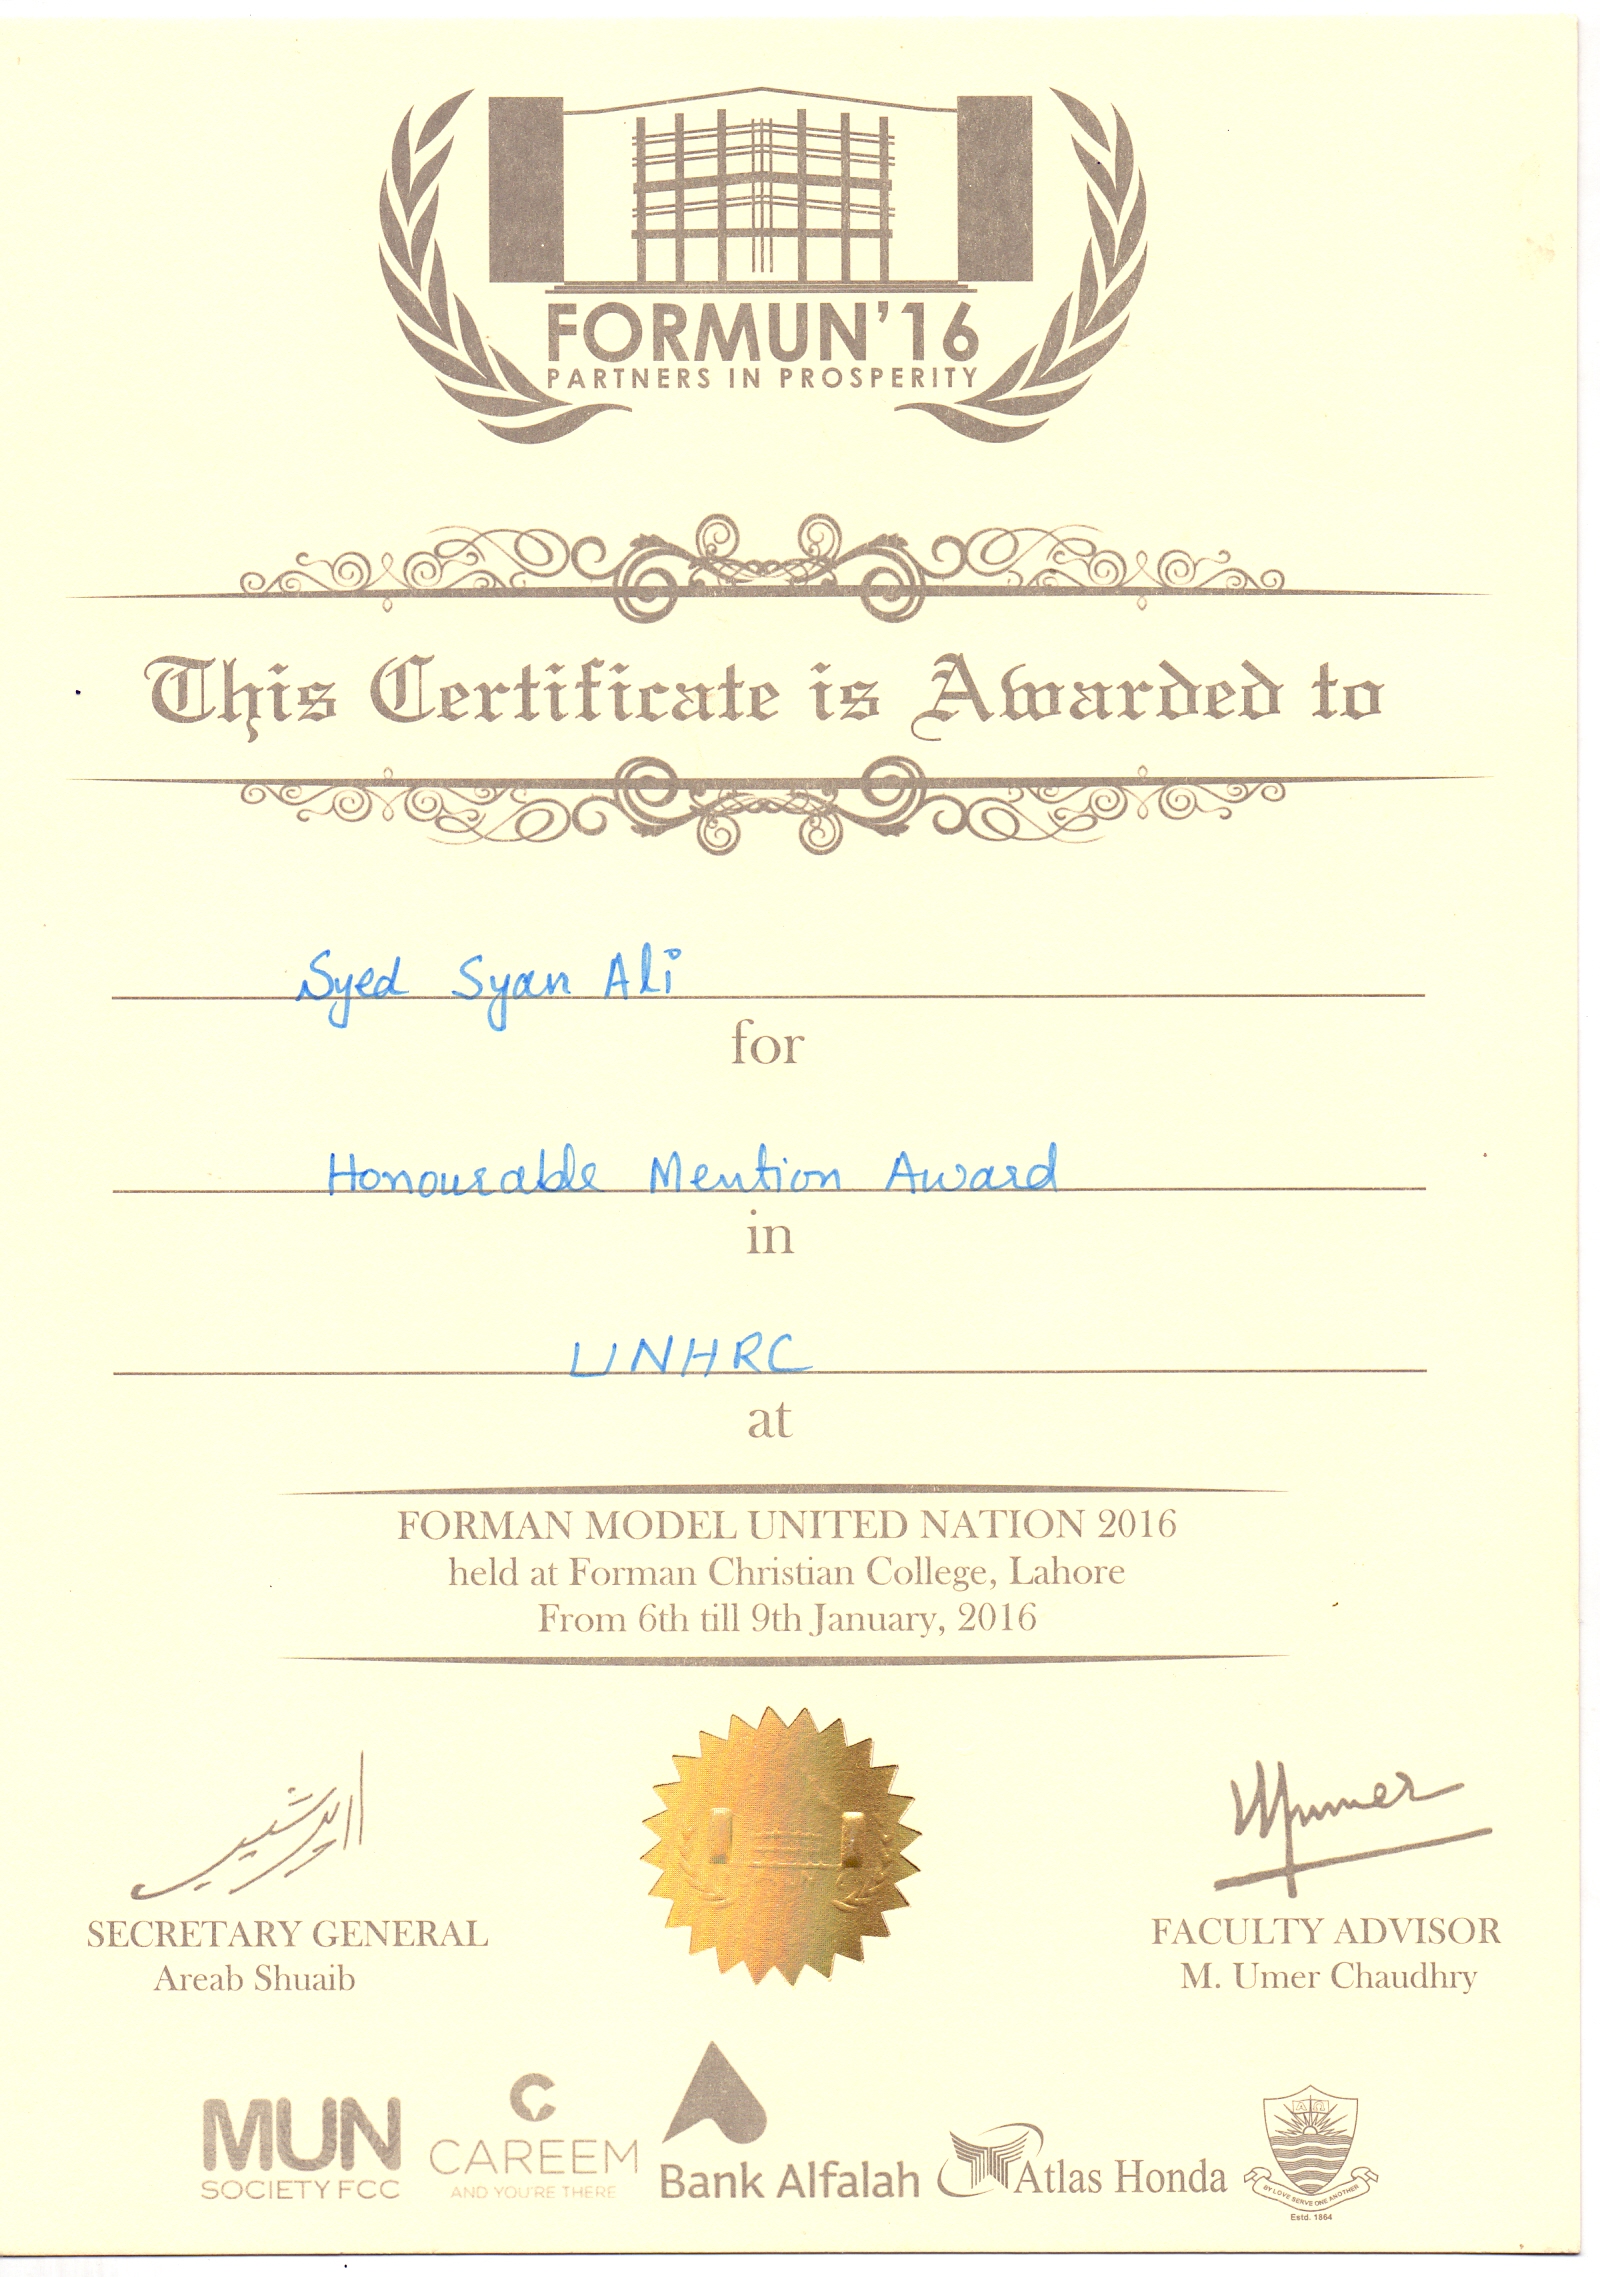 FORMUN'16
PARTNERS IN PROSPERITY
This Certificate is Awarded to
Syed Syan Ali
for
Honourable Mention Award
in
UNHRC
at
FORMAN MODEL UNITED NATION 2016
held at Forman Christian College, Lahore
From 6th till 9th January, 2016
اریب شعیب
Umer
SECRETARY GENERAL
Areab Shuaib
FACULTY ADVISOR
M. Umer Chaudhry
MUN
SOCIETY FCC
CAREEM
AND YOU'RE THERE
Bank Alfalah
Atlas Honda
BY LOVE SERVE ONE ANOTHER
Estd. 1864